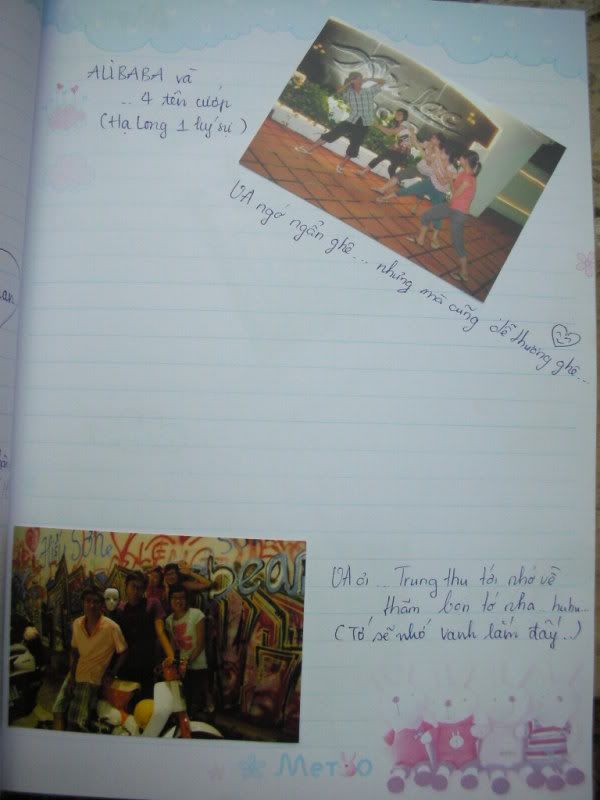 ALIBABA và
.. 4 tên cướp
(Hạ Long 1 ký sự)
VA ngớ ngẩn ghê... nhưng mà cũng dễ thương ghê...
VA ơi... Trung thu tới nhớ về
thăm bọn tớ nha huhu...
(Tớ sẽ nhớ vanh lắm đấy..)
MeTOO